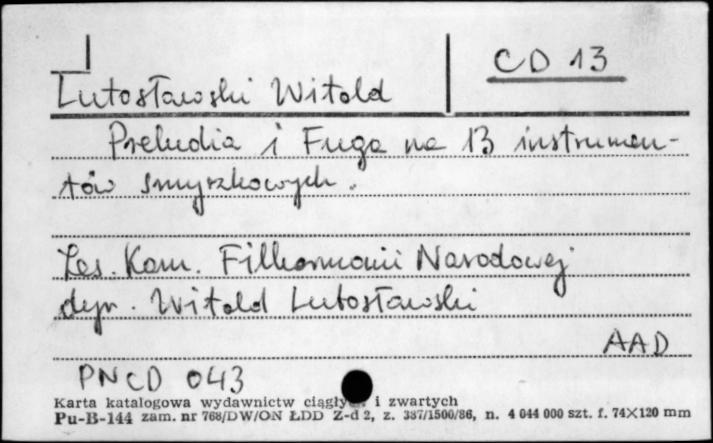 CD 13
Lutosławski Witold
Preludia i Fuga na 13 instrumen-
tów smyczkowych.
Zes. Kam. Filharmonii Narodowej
dyr. Witold Lutosławski
AAD
PNCD 043
Karta katalogowa wydawnictw ciągły i zwartych
Pu-B-144 zam. nr 768/DW/ON ŁDD Z-d 2, z. 387/1500/86, n. 4 044 000 szt. f. 74×120 mm